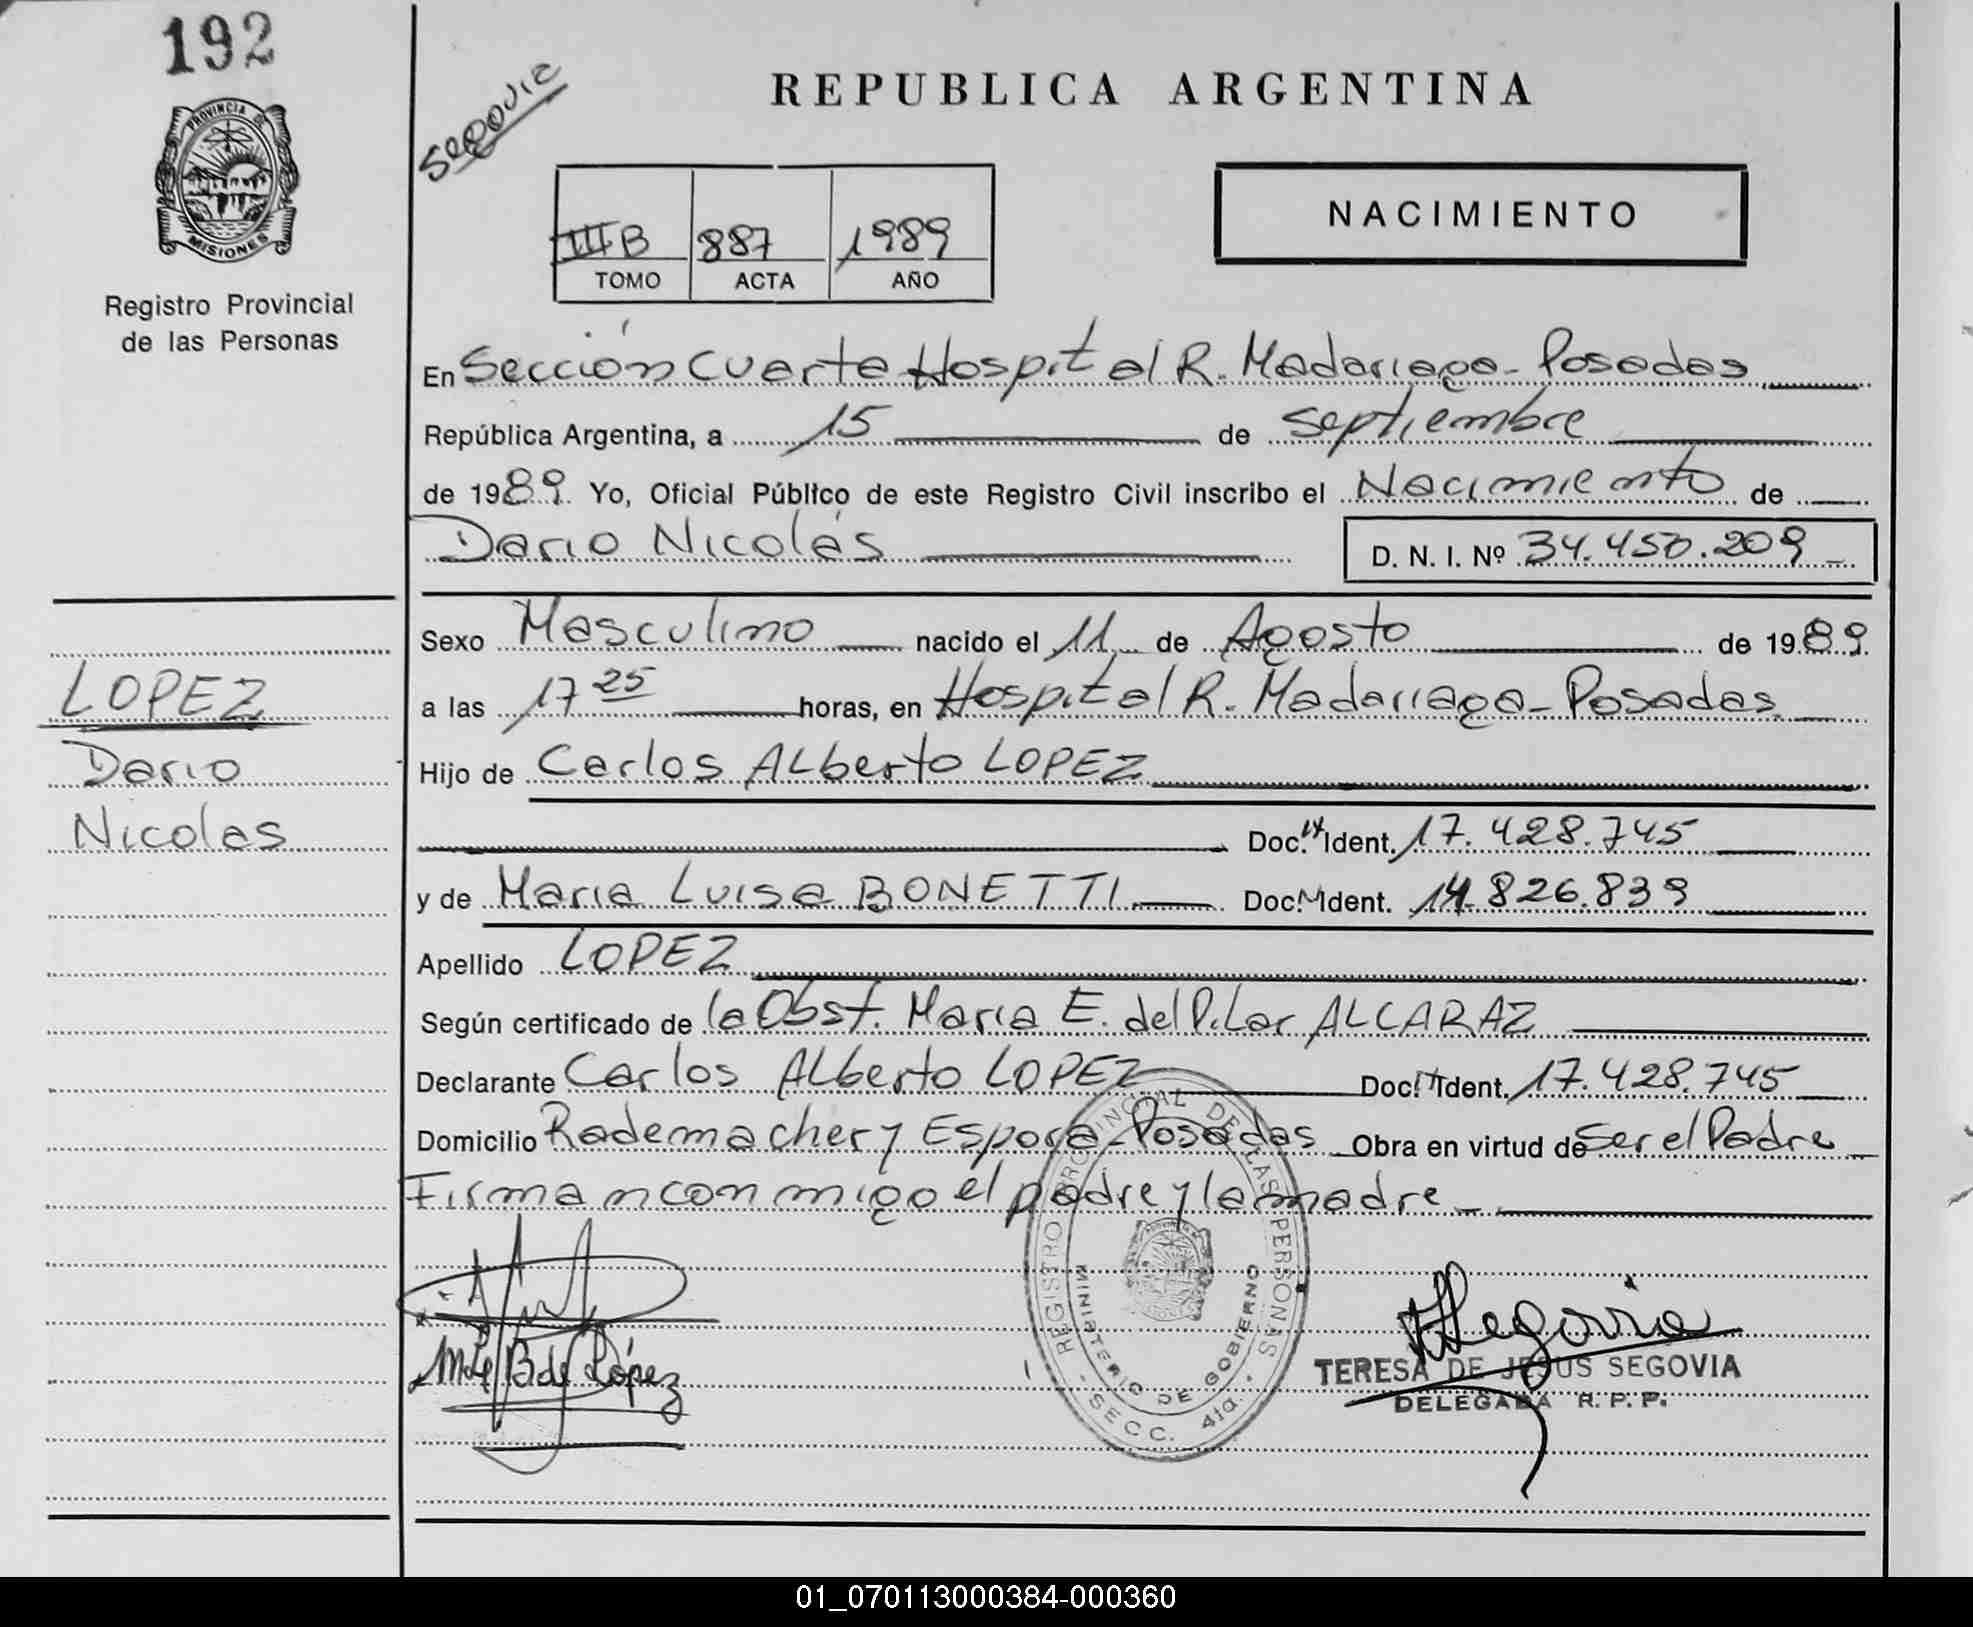 192
PROVINCIA DE
MISIONES
Registro Provincial
de las Personas
Segovia
REPUBLICA ARGENTINA
III B 887 1989
TOMO ACTA AÑO
NACIMIENTO
En Sección Cuarta Hospital R. Madariaga - Posadas
República Argentina, a 15 de septiembre
de 1989. Yo, Oficial Público de este Registro Civil inscribo el Nacimiento de
Dario Nicolás D. N. I. Nº 34.450.209
Sexo Masculino nacido el 11 de Agosto de 1989
a las 17 25 horas, en Hospital R. Madariaga - Posadas
Hijo de Carlos Alberto LOPEZ
Doc. Ident. 17.428.745
y de Maria Luisa BONETTI Doc. Ident. 14.826.839
Apellido LOPEZ
Según certificado de la Obst. Maria E. del Pilar ALCARAZ
Declarante Carlos Alberto LOPEZ Doc. Ident. 17.428.745
Domicilio Rademacher y Espora - Posadas Obra en virtud de Ser el Padre
Firman conmigo el padre y la madre
LOPEZ
Dario
Nicolas
REGISTRO PROVINCIAL DE LAS PERSONAS
MINISTERIO DE GOBIERNO
- SECC. 4ta. -
López
Segovia
TERESA DE JESUS SEGOVIA
DELEGADA R. P. P.
01_070113000384-000360